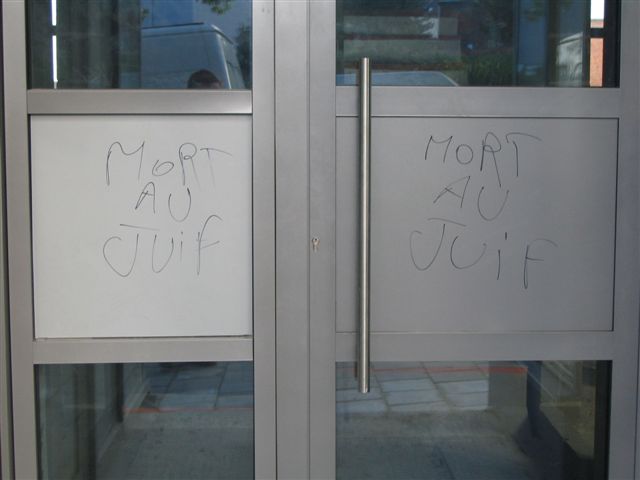 MORT
AU
JUIF
MORT
AU
JUIF